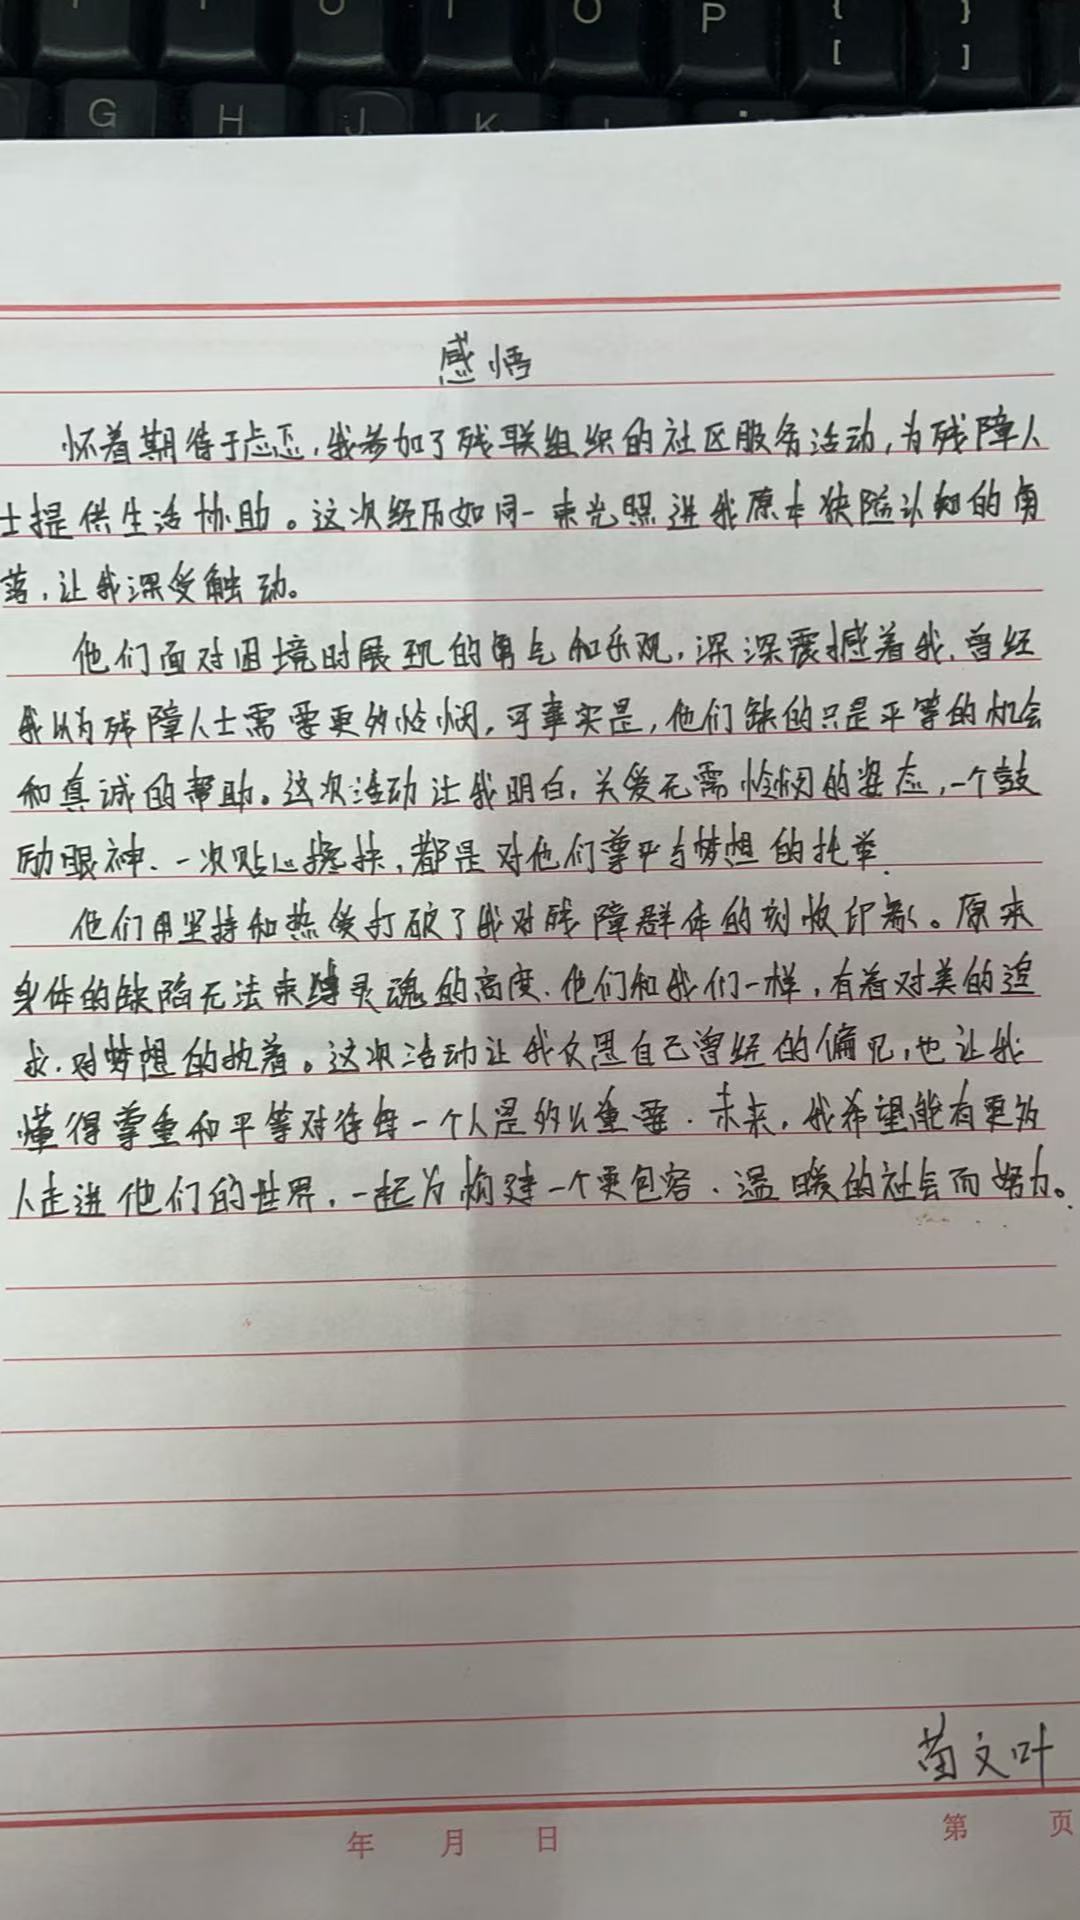 T Y U I O P { [ } ]
G H J K L
感悟
怀着期待于忐忑,我参加了残联组织的社区服务活动,为残障人
士提供生活协助。这次经历如同一束光照进我原本狭隘认知的角
落,让我深受触动。
他们面对困境时展现的勇气和乐观,深深震撼着我,曾经
我以为残障人士需要更多怜悯,可事实是,他们缺的只是平等的机会
和真诚的帮助。这次活动让我明白,关爱无需怜悯的姿态,一个鼓
励眼神、一次贴心搀扶,都是对他们尊严与梦想的托举.
他们用坚持和热爱打破了我对残障群体的刻板印象。原来
身体的缺陷无法束缚灵魂的高度、他们和我们一样,有着对美的追
求.对梦想的执着。这次活动让我反思自己曾经的偏见,也让我
懂得尊重和平等对待每一个人是多么重要.未来,我希望能有更多
人走进他们的世界,一起为构建一个更包容、温暖的社会而努力。
苗文叶
年 月 日 第 页